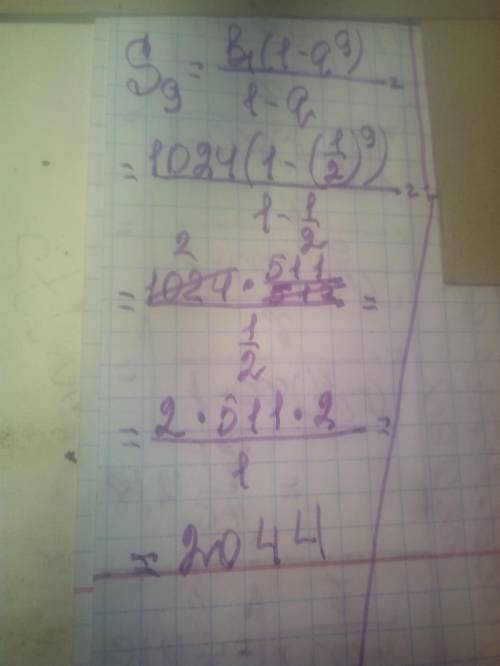 S₉ = b₁(1-q⁹) / 1-q =
= 1024(1-(1/2)⁹) / 1-1/2 =
2
= 1024 · 511/512 / 1/2 =
= 2·511·2 / 1 =
= 2044